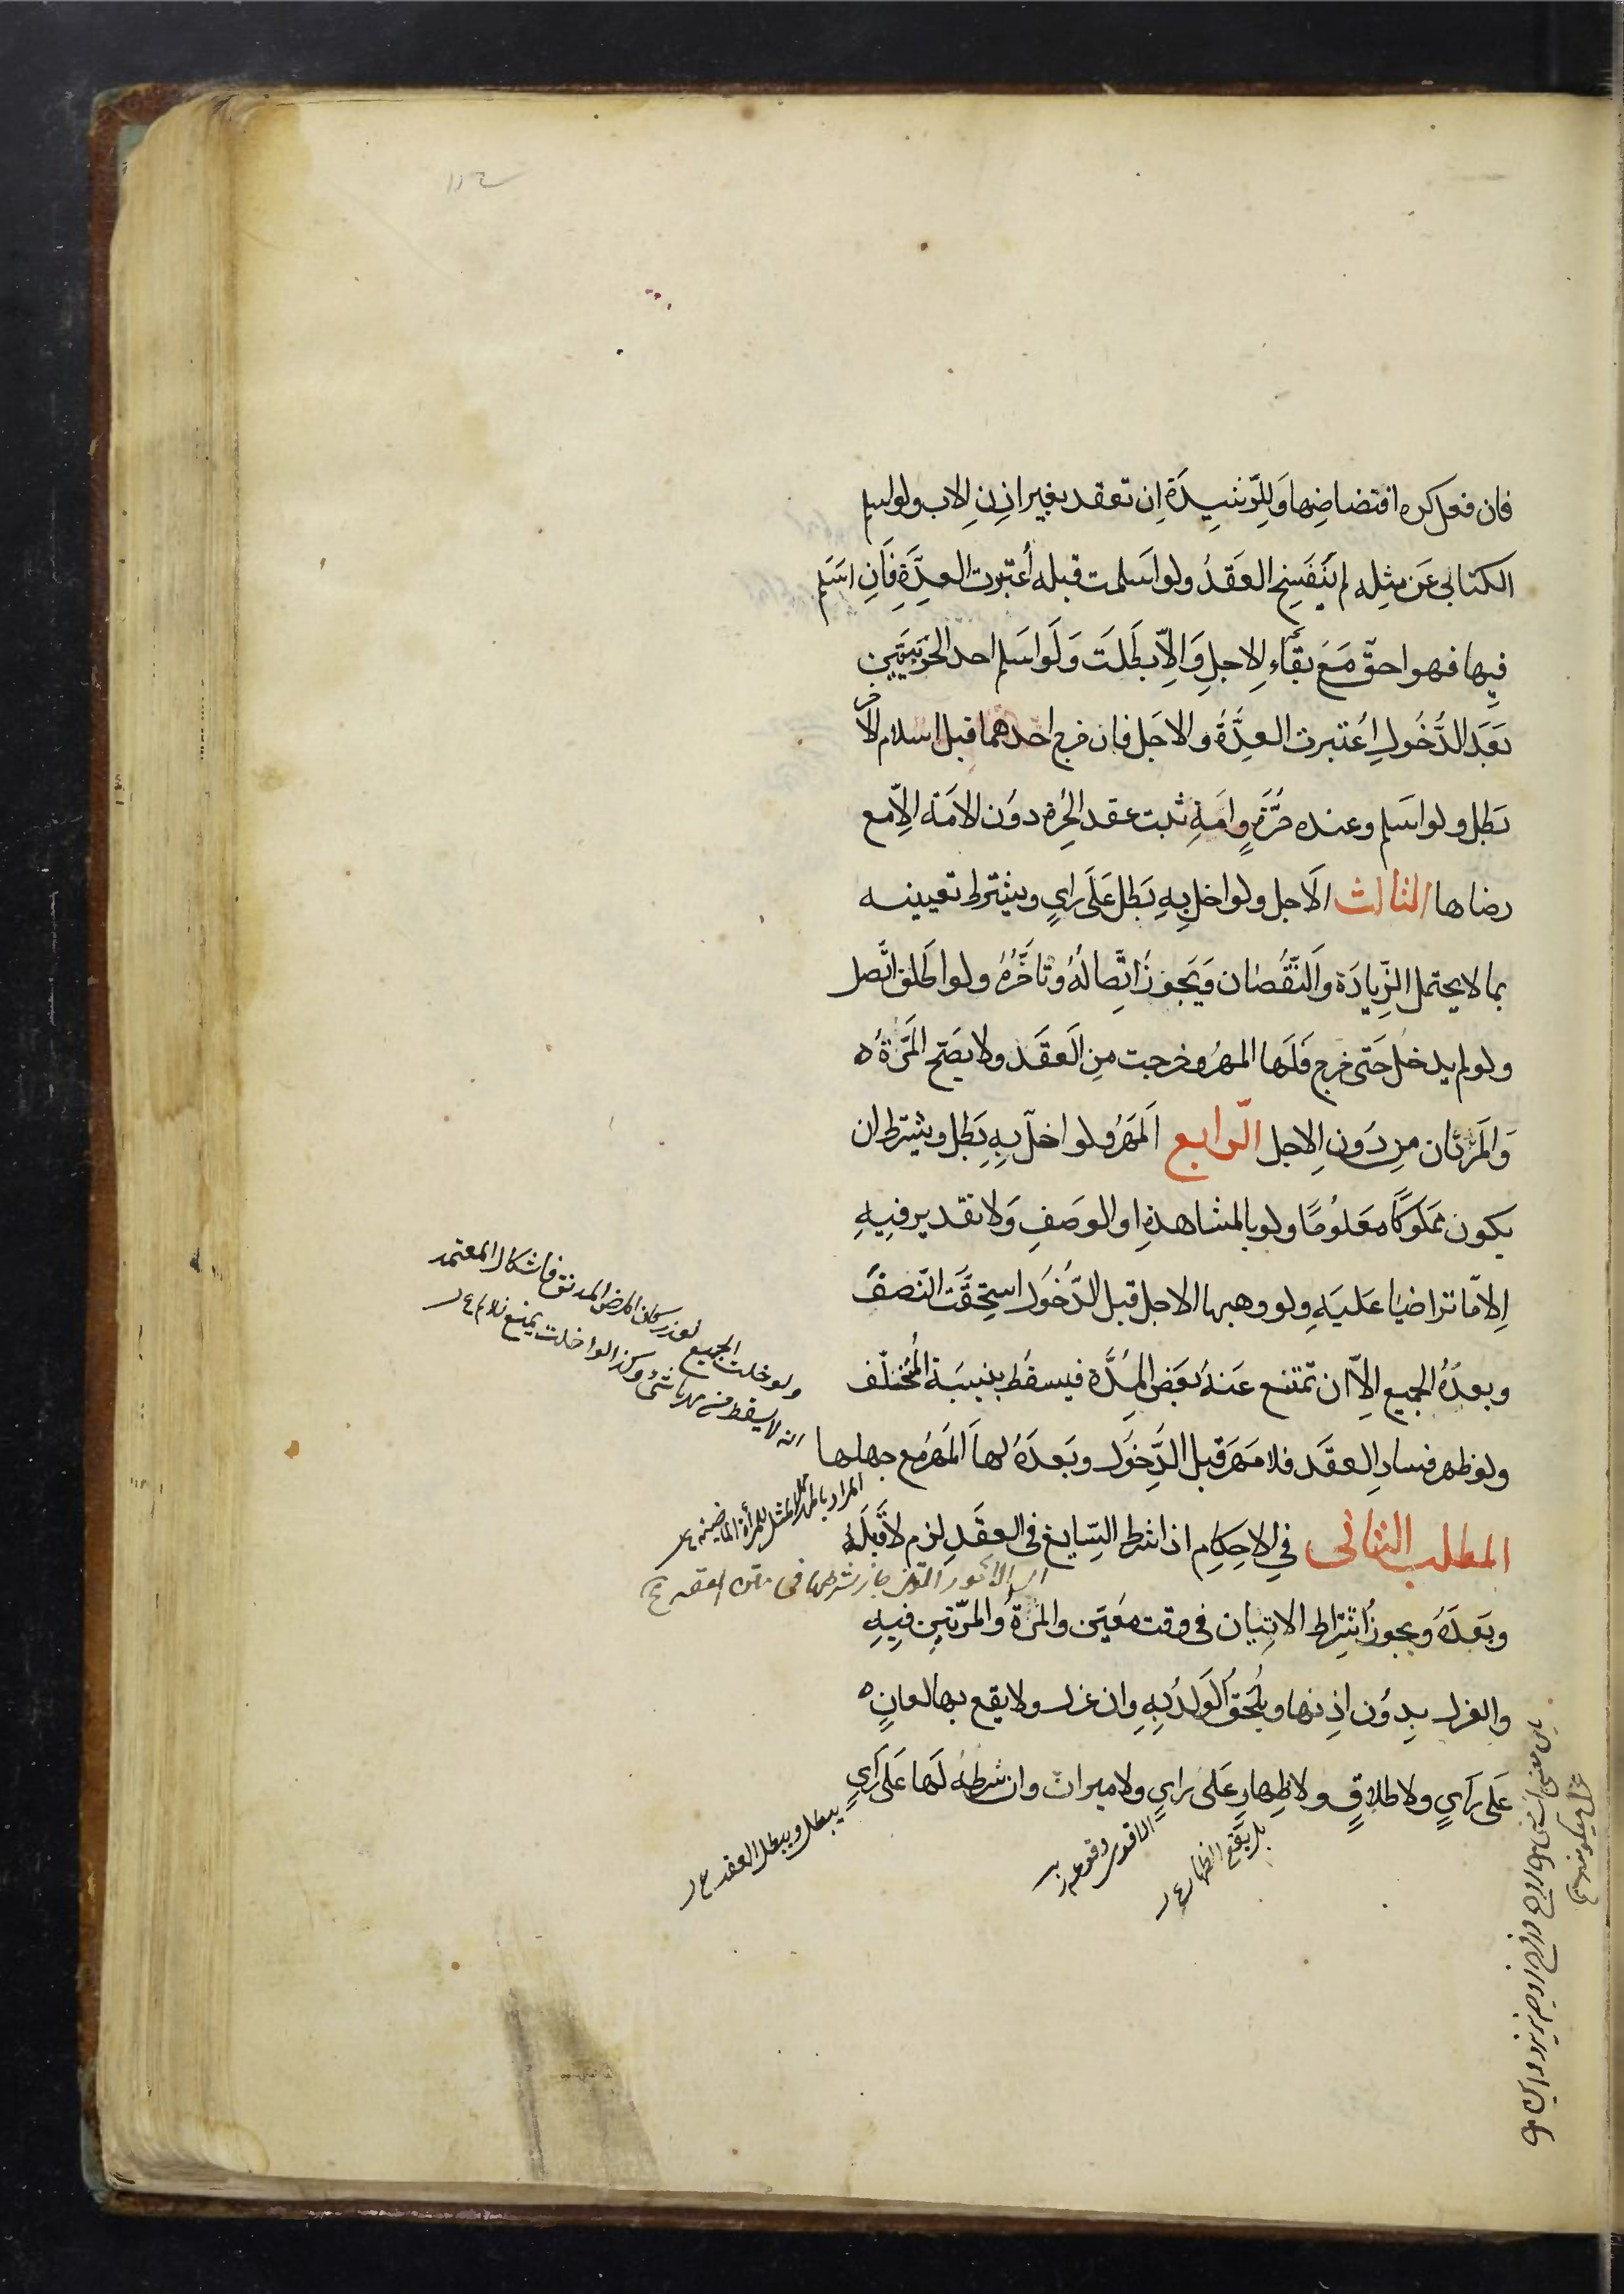 فان فعل كره افتضاضها وَلِلرّشيِدَة اِن تعقد بغير اذنِ الاب ولو اسلم
الكتابى عَن مثِلِهِ لم يَنفَسِخ العَقدُ ولو اسَلمت قبله أعتبرت العِدَّة فَاِنِ اسَلَم
فيِها فهو احقّ مَعَ بَقَاءِ الاجلِ وَالاِّ بطَلَت وَلَو اسَلم احد الحَربيَّين
بَعَدَ الدُّخُولِ اعُتبرت العِدَّةُ والاجَل فان خرج احَدهما قبل اسلام الاخر
بَطَل ولو اسَلم وعنده حُرَّةٍ وامَةِ ثبت عقد الحُرة دوُن الامَة الاِّ مع
رضاها الثالث الاَجل ولو اخل بِهِ بَطَل عَلَى رايٍ ويشترط تعيينه
بما لا يحتمل الزِّيادَة وَالنّقُصان وَيَجوزُ اتِّصالُهُ وتَأَخُّرُهُ ولو اطَلق اتَّصل
ولو لم يدخل حَتى خرج فَلَها المهرُ وخرجت مِن العَقَد ولا يصَح المَرَّةُ ه
وَالمَرتان مِن دَونِ الاجل الرّابع المَهَرُ ولو اخلّ بِهِ بَطَل ويشترط ان
يكون مَملَوكًا معَلوُمًا ولو بالمشاهدةِ او الوصَفِ وَلا تقدير فيِهِ
اِلا مّا تراضيَا عَليَهِ ولو وهبها الاجل قبل الدّخُولِ استحِقَّت النّصف
وبعدَهُ الجميع الاّ ان تمتنع عَنهُ بعَض المِدَّة فيسقُط بنسِبَة المُختلّف
ولو ظهر فسادِ العقَد فلا مَهَر قبل الدِّخوَل وبَعدَهُ لها المَهَرُ مع جهلها
المطلب الثانى فيِ الاحِكامِ اذا شرط السّايغ فى العقَدِ لزم لا قَبلَهُ
وبَعَدَهُ ويجوزُ اشتِراط الاتِيان فى وقت معَيّن والمَرَةُ والمرّتيِن فيِهِ
والعزل بدوُن اذِنها ويُلحَقُ الوَلدُ بِهِ وان عزل ولا يقع بها لعانٍ ه
عَلى رَايٍ ولا طلاقٍ ولا ظِهارٍ عَلى رايٍ ولا ميراث وان شرطهُ لَها عَلى رَايٍ
ولو خلت الجميع لعذر كان المرض المدنق فاشكال المعتمد
انه لا يسقط من مهرها شئ وكذا لو اخلت
المراد بالمهر المثل للمرأة
جاز شرطها فى متن العقد
بل يقع الظهار
الاقوى وقوعه
يبطل ويبطل العقد